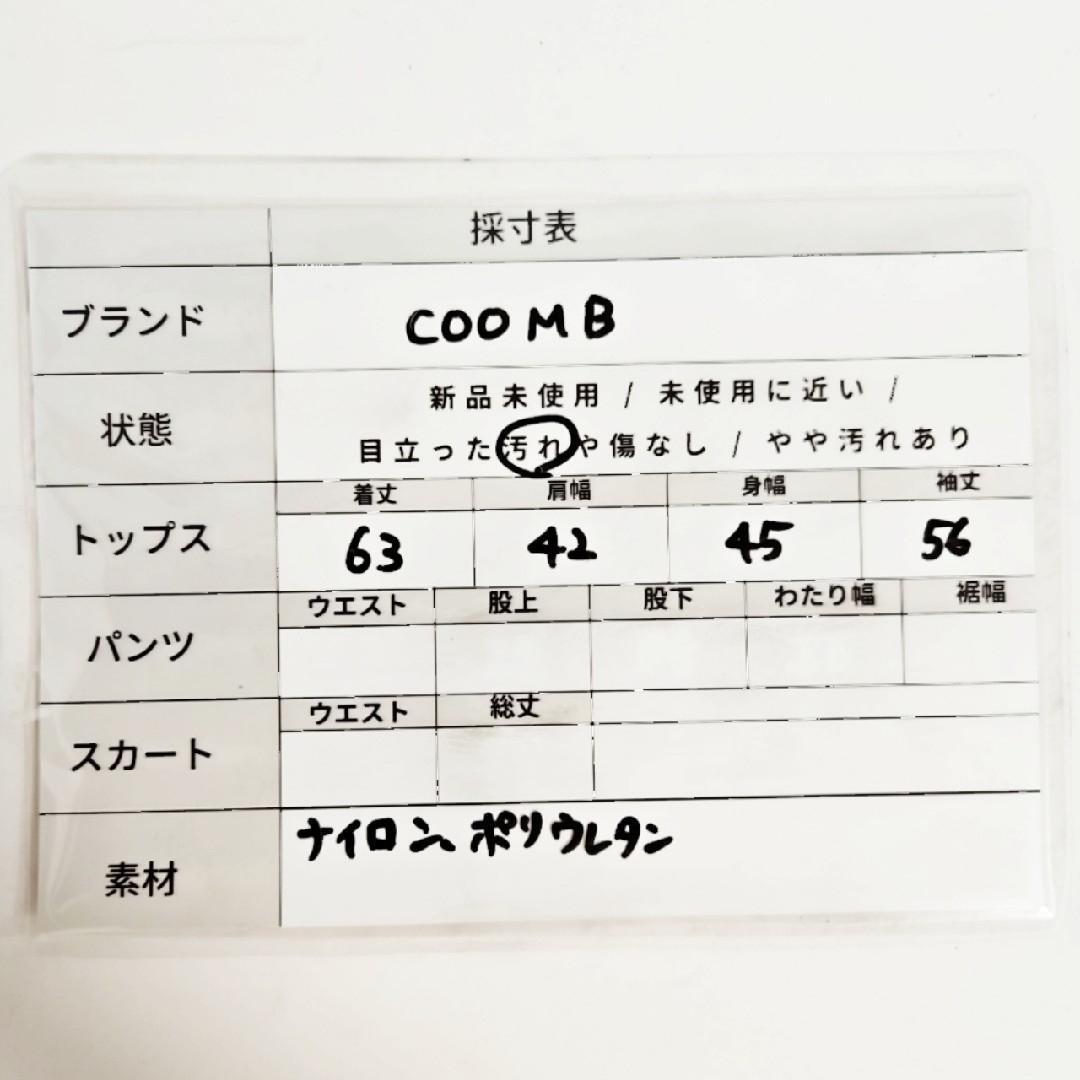 採寸表
ブランド COOMB
状態 新品未使用 / 未使用に近い /
目立った汚れや傷なし / やや汚れあり
着丈 肩幅 身幅 袖丈
トップス 63 42 45 56
ウエスト 股上 股下 わたり幅 裾幅
パンツ
ウエスト 総丈
スカート
素材 ナイロン、ポリウレタン